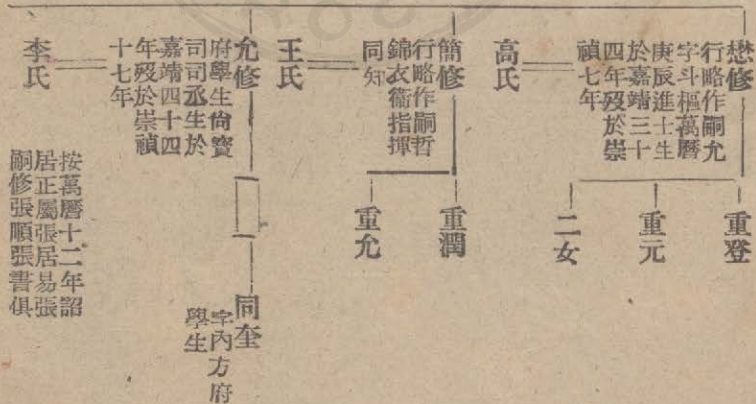 懋修
行略作嗣允
字斗樞萬曆
庚辰進士生
於嘉靖三十
四年歿於崇
禎七年
高氏
重登
重元
二女
簡修
行略作嗣哲
錦衣衞指揮
同知
王氏
重潤
重允
允修
府學生尙寳
司司丞生於
嘉靖四十四
年歿於崇禎
十七年
李氏
同奎
字內方府
學生
按萬曆十二年詔
居正屬張居易張
嗣修張順張書俱